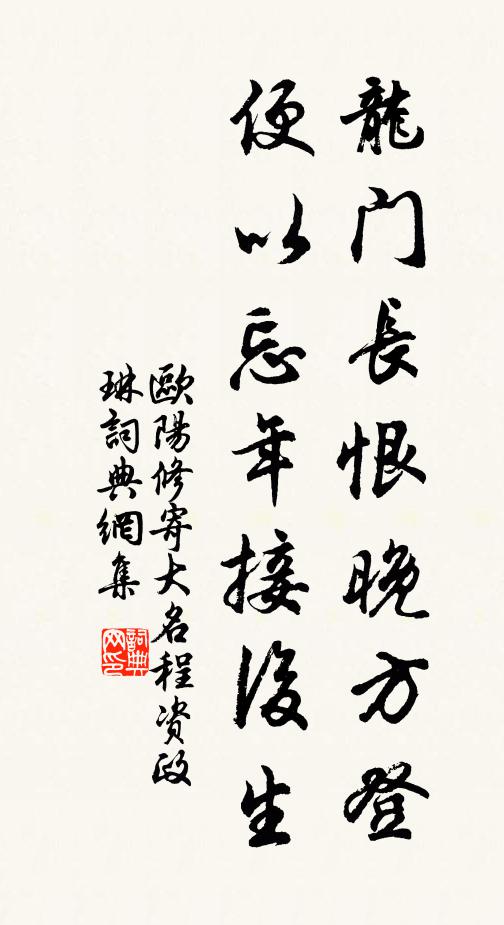 龍门長恨晚方登
便以忘年接後生
歐陽修寄大名程资政
琳詞典網集
詞典网印